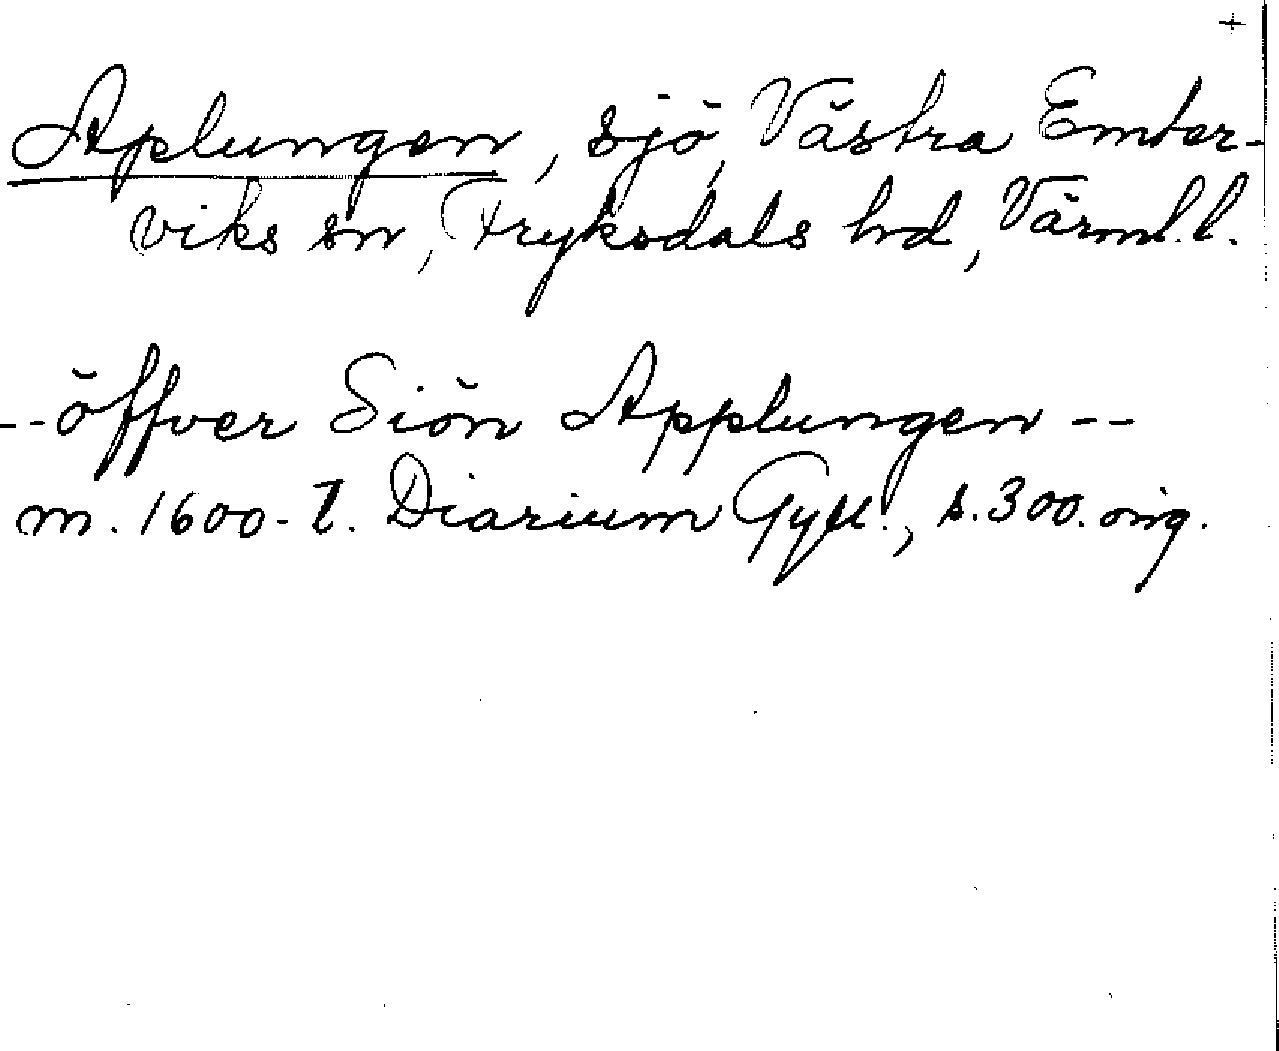 +
Aplungen, sjö, Västra Emter-
viks sn, Fryksdals hd, Värml. l.
--öffver Siön Applungen--
m. 1600-t. Diarium Gyll., s. 300. orig.